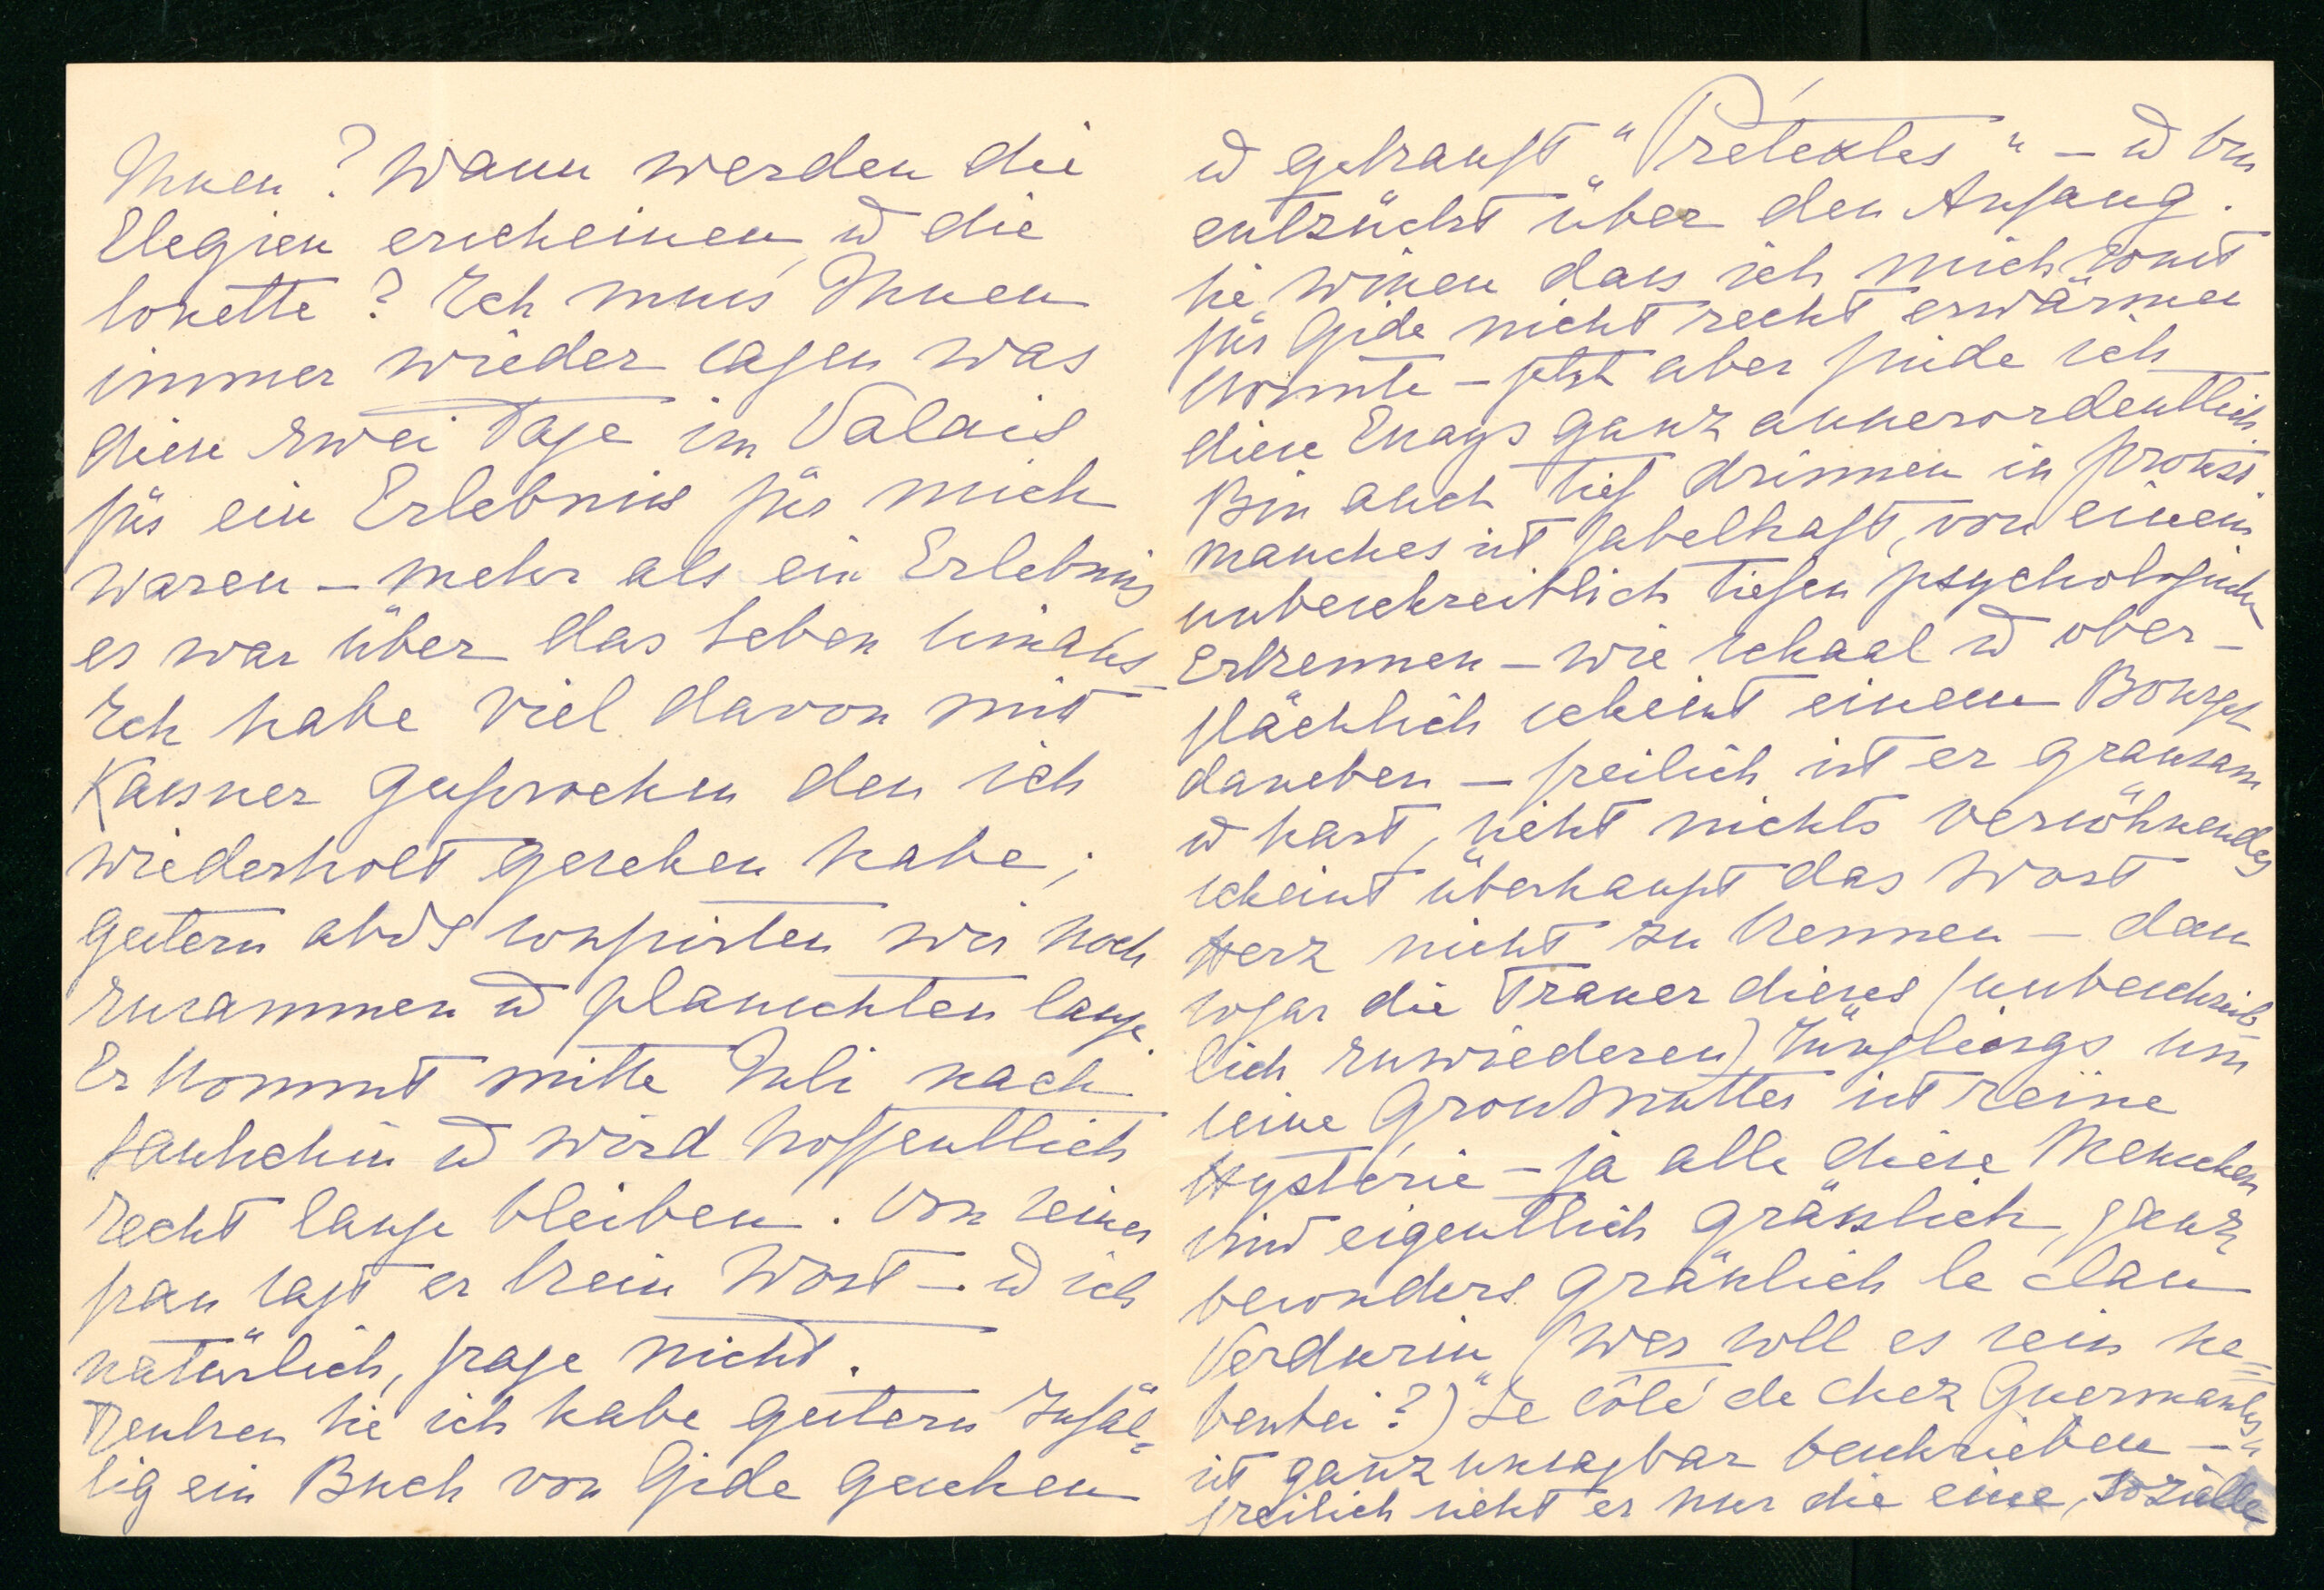 Ihnen? Wann werden die
Elegien erscheinen, u die
sonette? Ich muss Ihnen
immer wieder sagen was
diese zwei Tage im Valais
für ein Erlebnis für mich
waren – mehr als ein Erlebnis
es war über das Leben hinaus –
Ich habe viel davon mit
Kassner gesprochen den ich
wiederholt gesehen habe;
gestern abds soupirten wir noch
zusammen u plauschten lange.
Er kommt mitte Juli nach
Lautschin u wird hoffentlich
recht lange bleiben. Von seiner
frau sagt er kein Wort – u ich
natürlich, frage nicht.
Denken Sie ich habe gestern Zufäl=
lig ein Buch von Gide gesehen
u gekauft "Prétextes" – u bin
entzückt über den Anfang.
Sie wissen dass ich mich sonst
für Gide nicht recht erwärmen
konnte – jetzt aber finde ich
diese Essays ganz ausserordentlich.
Bin auch tief drinnen in Proust.
manches ist fabelhaft, von einem
unbeschreiblich tiefen psychologischen
Erkennen – wie schaal u ober–
flächlich scheint einem Bourget
daneben – freilich ist er grausam
u hart, sieht nichts versöhnendes
scheint überhaupt das Wort
Herz nicht zu kennen – denn
sogar die Trauer dieses (unbeschreib
lich zuwiederen) Jünglings um
seine Grossmutter ist reine
Hysterie – ja alle diese Menschen
sind eigentlich grässlich, ganz
besonders grässlich le clan
Verdurin" (wer soll es sein ne=
benbei?) "Le côté de chez Guermantes"
ist ganz unsagbar beschrieben –
freilich sieht er nur die eine, sozialle